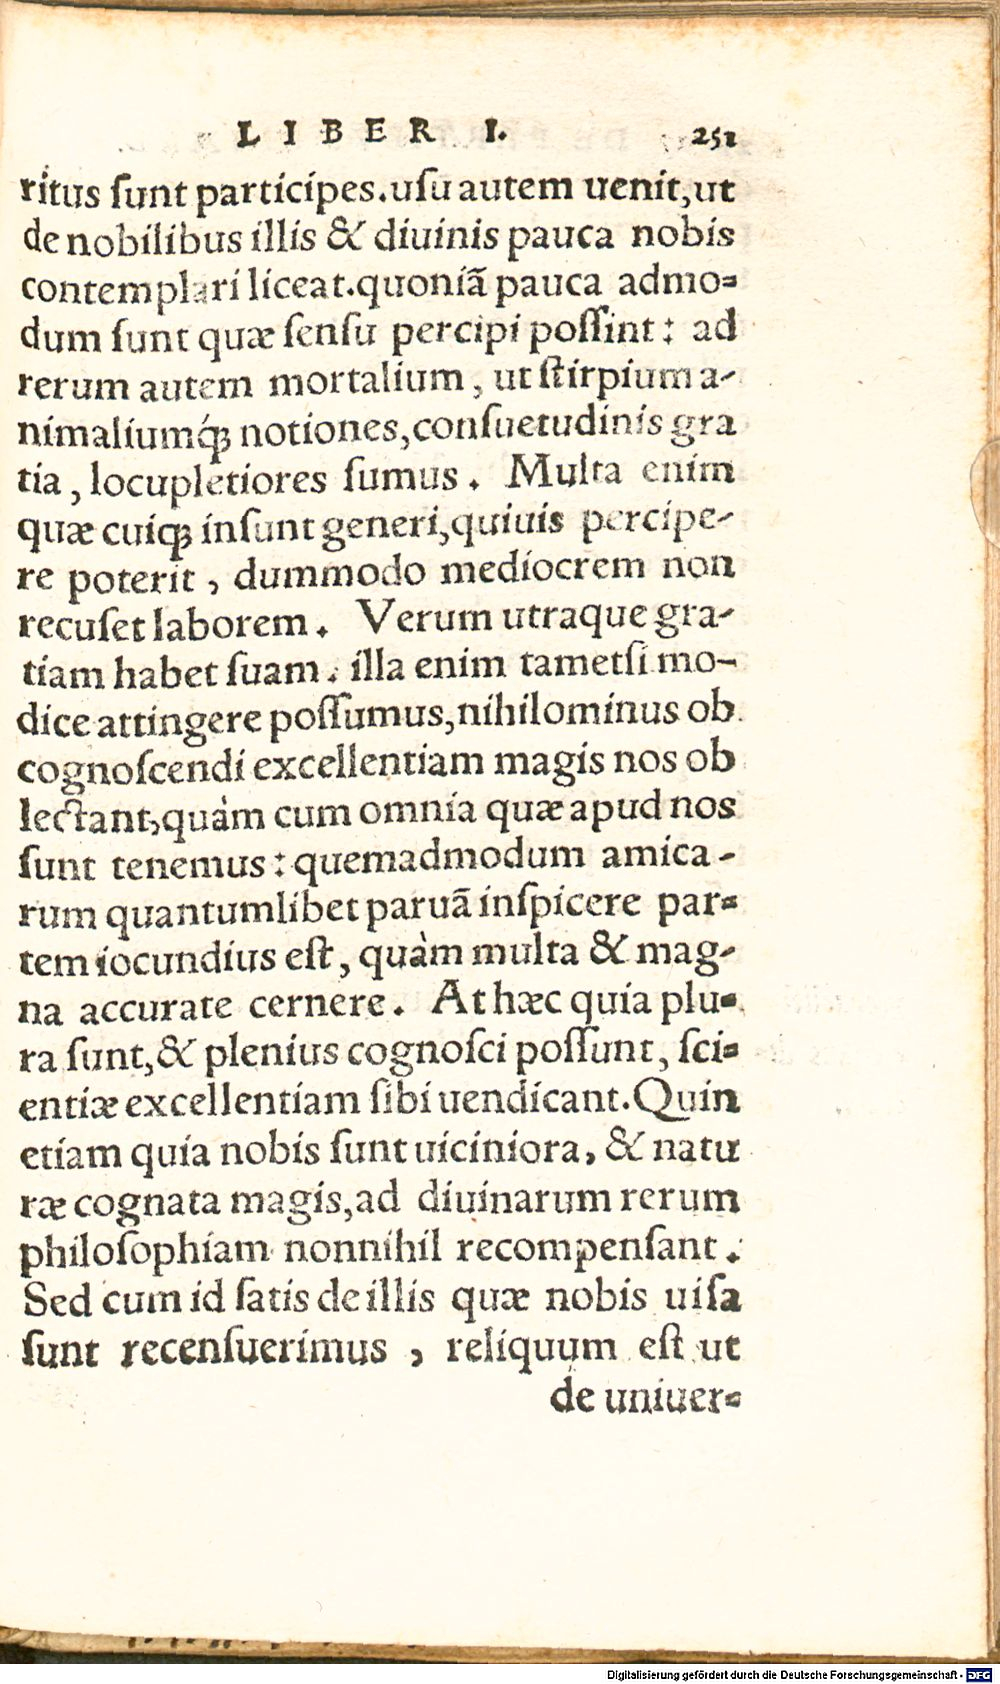 LIBER I. 251
ritus sunt participes. usu autem uenit, ut
de nobilibus illis & diuinis pauca nobis
contemplari liceat. quoniã pauca admo⸗
dum sunt quæ sensu percipi possint: ad
rerum autem mortalium, ut stirpium a-
nimaliumq́; notiones, consuetudinis gra
tia, locupletiores sumus. Multa enim
quæ cuiq; insunt generi, quiuis percipe-
re poterit, dummodo mediocrem non
recuset laborem. Verum utraque gra-
tiam habet suam. illa enim tametsi mo-
dice attingere possumus, nihilominus ob
cognoscendi excellentiam magis nos ob
lectant, quàm cum omnia quæ apud nos
sunt tenemus: quemadmodum amica-
rum quantumlibet paruã inspicere par⸗
tem iocundius est, quàm multa & mag-
na accurate cernere. At hæc quia plu⸗
ra sunt, & plenius cognosci possunt, sci⸗
entiæ excellentiam sibi uendicant. Quin
etiam quia nobis sunt uiciniora, & natu
ræ cognata magis, ad diuinarum rerum
philosophiam nonnihil recompensant.
Sed cum id satis de illis quæ nobis uisa
sunt recensuerimus, reliquum est ut
de uniuer⸗
Digitalisierung gefördert durch die Deutsche Forschungsgemeinschaft - DFG